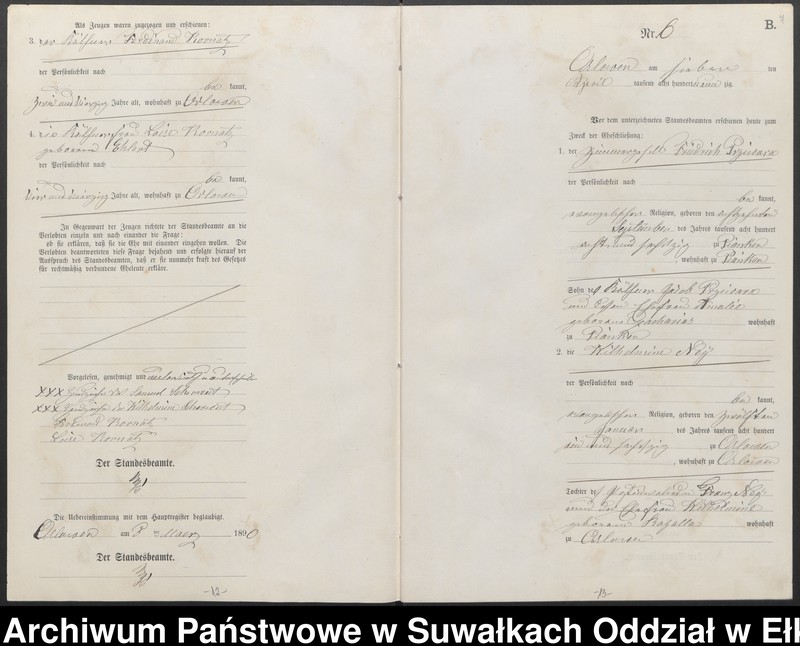 Als Zeugen waren zugezogen und erschienen:
3. der Käthner Ferdinand
der Persönlichkeit nach
be kannt,
zwei und vierzig Jahre alt, wohnhaft zu Orlowen
4. die Käthnerfrau Loise
geborene Ehlert
der Persönlichkeit nach
be kannt,
vier und zwanzig Jahre alt, wohnhaft zu Orlowen
In Gegenwart der Zeugen richtete der Standesbeamte an die
Verlobten einzeln und nach einander die Frage:
ob sie erklären, daß sie die Ehe mit einander eingehen wollen. Die
Verlobten beantworteten diese Frage bejahend und erfolgte hierauf der
Ausspruch des Standesbeamten, daß er sie nunmehr kraft des Gesetzes
für rechtmäßig verbundene Eheleute erkläre.
Vorgelesen, genehmigt und
XXX Handzeichen des Samuel
XXX Handzeichen der Wilhelmine
Ferdinand
Loise
Der Standesbeamte.
Die Uebereinstimmung mit dem Hauptregister beglaubigt.
Orlowen am 8 ten Maerz 1890
Der Standesbeamte.
-12-
B.
Nr. 6
Orlowen am sieben ten
April tausend acht hundert neun zig
Vor dem unterzeichneten Standesbeamten erschienen heute zum
Zweck der Eheschließung:
1. der Zimmergeselle Friedrich
der Persönlichkeit nach
be kannt,
evangelischer Religion, geboren den achtzehnten
September des Jahres tausend acht hundert
acht und sechszig zu Pianken
, wohnhaft zu Pianken
Sohn des Käthners Jacob
und dessen Ehefrau Amalie
geborene Zacharias wohnhaft
zu Pianken
2. die Wilhelmine Ney
der Persönlichkeit nach
be kannt,
evangelischer Religion, geboren den zwölften
Januar des Jahres tausend acht hundert
ein und sechszig zu Orlowen
, wohnhaft zu Orlowen
Tochter des Franz Ney
und der Ehefrau Wilhelmine
geborene wohnhaft
zu Orlowen
-13-
Archiwum Państwowe w Suwałkach Oddział w Ełk